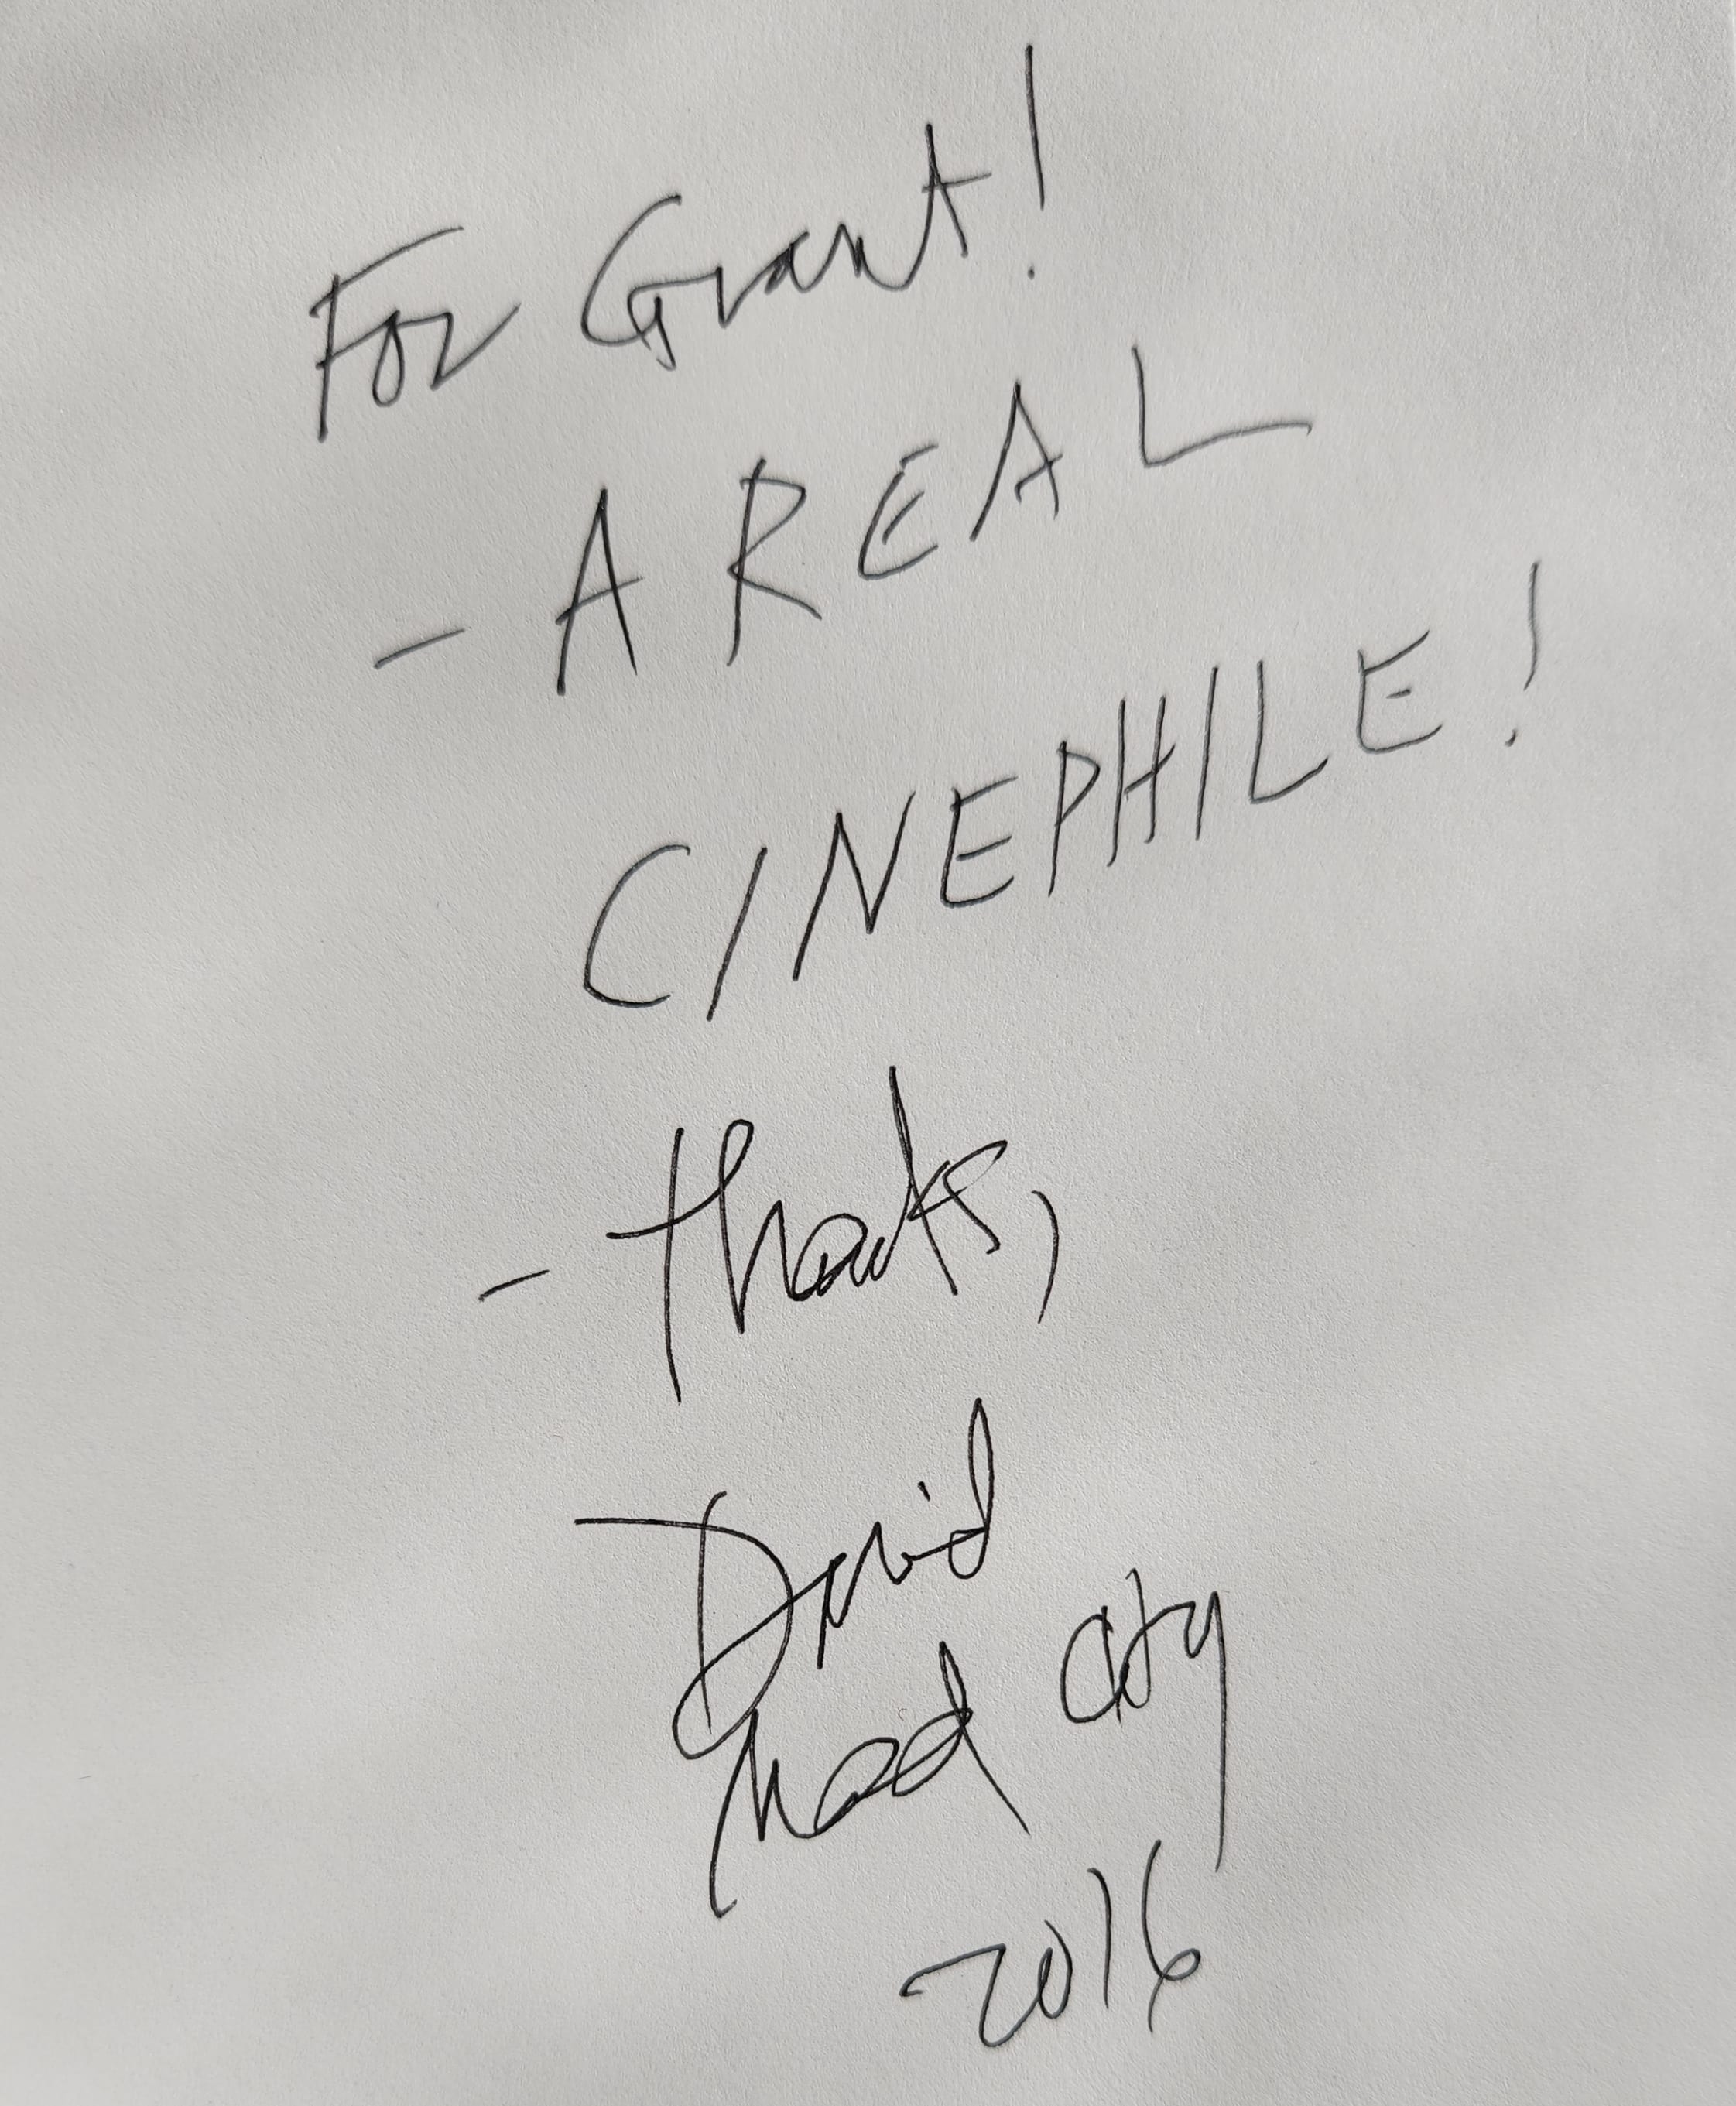 For Grant!
- A REAL
CINEPHILE!
- thanks,
David
Mad City
2016